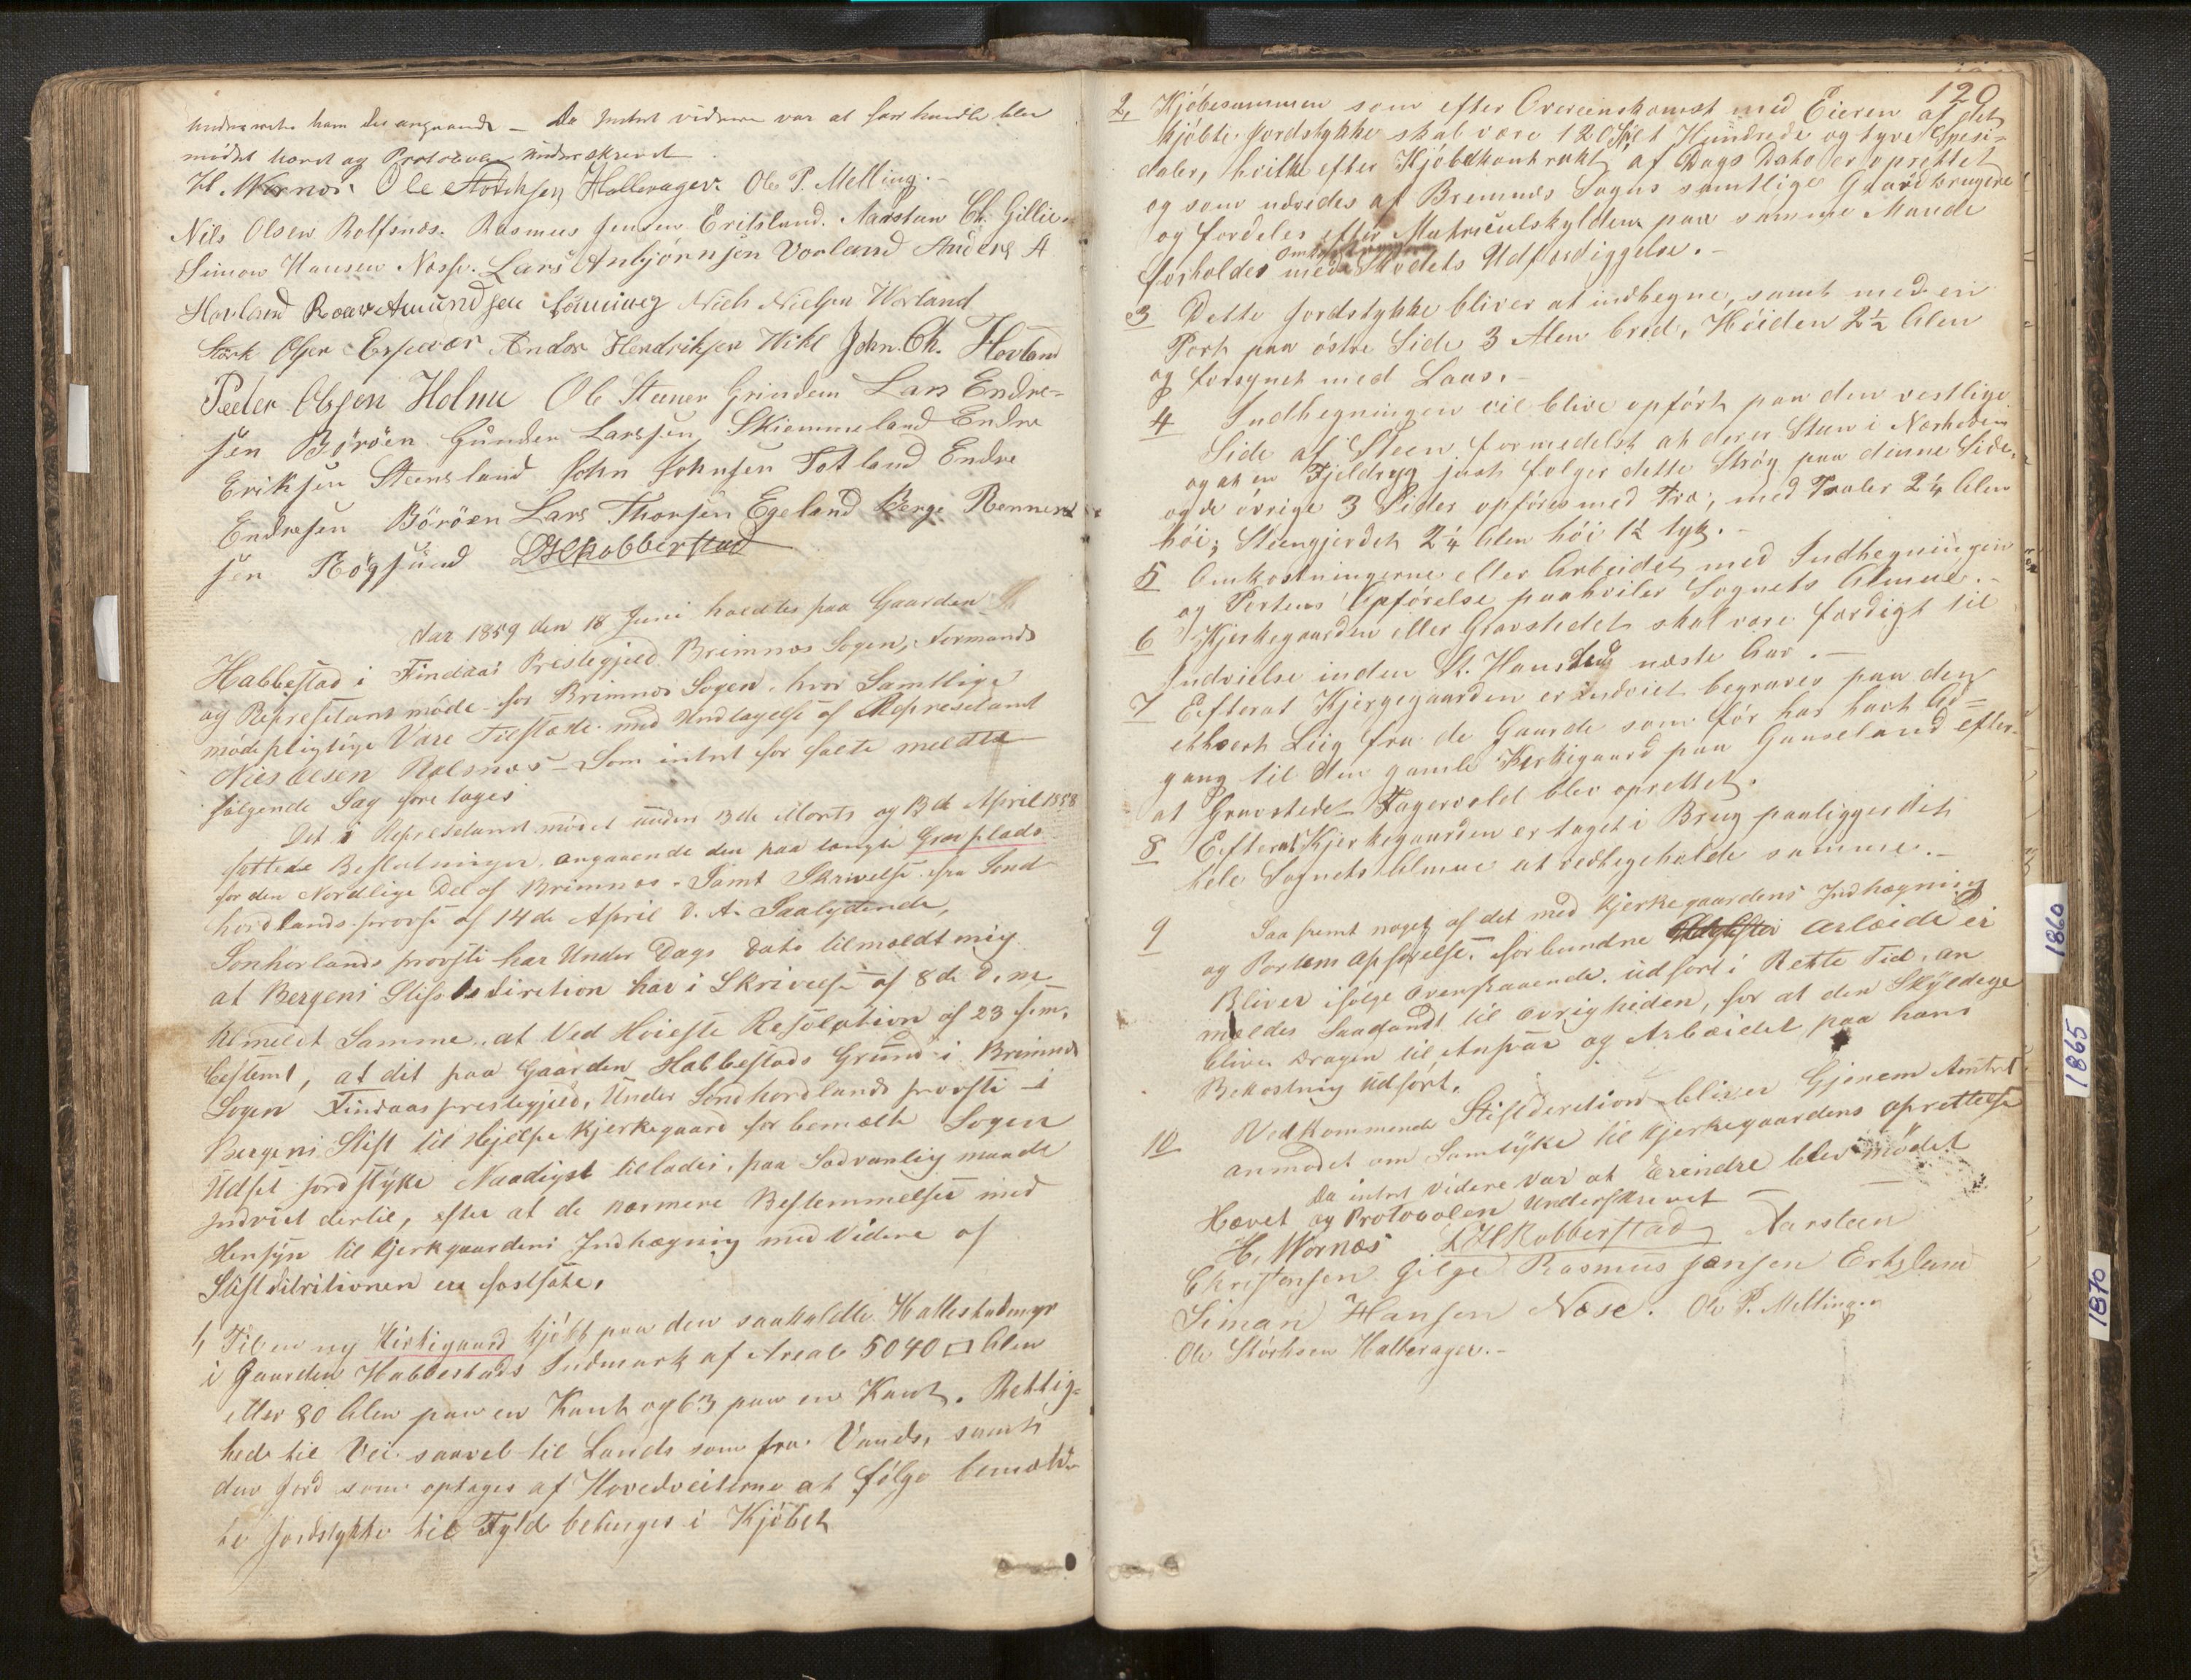 underrette ham des angaaende – Da Intet videre var at forhandle blev
mödet hævet og Protocolen underskrevet.
H. Wernøs. Ole Storchsen Hallevager. Ole P. Melling.–
Nils Olsen Rolfsnæs. Rasmus Jensen Eritsland. Aarstaen Ch. Gillie.
Simon Hansen Næsse. Lars Anbjørnsen Vorland Anders A
Hovland Roar Amundsen Nich Nielsen Worland
Stork Olsen Espevær Andor Hendriksen Wihl John. Ch. Hovland
Peder Olssen Holme Ole Steener Grindem Lars Endre=
sen Böröen Gunder Larssen Skimmeland Endre
Eriksen Steensland John Johnsen Totland Endre
Endresen Böröen Lars Thorsen Egeland Berge Rennert
sen Rögsund LHRobberstad
Aar 1859 den 18 Juni holdtes paa Gaarden
Habbestad i Findaas Prestegjeld Brimnæs Sogen, Formands
og Represetant möde for Brimnæs Sogen. hvor Samtlige
mödepligtige Vare Tilstæde med Undtagelse af Represetant
Nils Olsen Rolsnæs – Som intet for falte meldte
fölgende Sag fore toges
Det i Represetant mödet under 3de Morts og 13de April 1858
fattede Beslutninger angaaende den paa tængte Grav plads
for den Nordlige Del af Brimnæs. Samt Skrivelse fra Sönd
hordlands provste af 14de April d. A. Saalydende,
Sönhorlands provste har Under Dags Dato tilmældt mig
at Bergens Stifts diretion har i Skrivelse af 8de d. m.
tilmeldt Samme, at Ved Höieste Resolution af 23 f. m.
bestemt, at dit paa Gaarden Habbestads Grund i Brimnæs
Sogen Findaas prestegjeld, Under Söndhordlands provsti i
Bergens Stift til Hjelpe kjerkegaard for bemælte Sogen
Udset jordstyke Naadigst tillades, paa Sædvanlig maade
Indviet dertil, efter at de næmere Bestemmelser med
Hensyn til kjerkgaardens Indhægnig med Videre af
Stiftditritionen er fastsate.
1, Til en ny Kirkigaard kjöbt paa den saakaldte Hallestadmyr
i Gaarden Habbestads Indmark af Areal 5040 □ Alen
eller 80 Alen paa en Kant og 63 paa en Kant. Rettig=
hed til Vei saavel til Lands som fra Vands, samt
den Jord som optages af Hovedveiterne at fölge bemæld=
te Jordstykke til Fyld betinges i Kjöbet
120
2, Kjöbesummen som efter Overeenskomst med Eieren af det
kjöbte Jordstykke skal være 120 Spd t Hundrede og tyve Spesi-
daler, hvilke efter Kjöbekontrakt af Dags Dato er oprettet
og som udredes af Bremnes Sogns samtlige Gaardbrugere
og fordeles efter Matriculskylden paa samme Maade
forholdes med Sködets Udfærdiggelse.–
3 Dette Jordstykke bliver at indhegne, samt med en
Port paa östre Side 3 Alen bred, Höiden 2½ Alen
og forsynet med Laas.–
4 Indhegningen vil blive opfört paa den vestlige
Side af Steen formedelst at der er Steen i Nærheden
og at en Fjeldryg just fölger dette Strög paa denne Side,
og de övrige 3 Sider opföres med Træ, med Traler 2¼ Alen
höi; Steengjerdet 2¼ Alen höi 1½ tyk.–
5 Omkostningerne eller Arbeidet med Indhegningen
og Portens Opförelse paahviler Sognets Almue.–
6 Kjerkegaarden eller Gravstedet skal være færdigt til
Indvielse inden St. Hans Tid næste Aar.–
7 Efterat Kjergegaarden er indviet begraves paa den
ethvert Liig fra de Gaarde som för har havt Ad=
gang til den gamle Kerkigaard paa Gaaseland efter-
at Gravstedet Fagervold blev oprettet.
8 Efterat Kjerkegaarden er taget i Brug paaligger det
hele Sognets Almue at vedligeholde samme.–
9 Saa fremt noget af det med kjerkegaardens Indhægning
og Portens opförelse, forbundne arbeide ei
Bliver ifölge ovenstaaende. udfört i Rette Tid, an
meldes Saadandt til övrigheden, for at den Skyldige
bliver Dragen til Ansvar og Arbæidet paa hans
Bekostnig udfört.
10 Vedkommende Stiftderetion bliver Gjenem Amtet
anmodet om Samtyke til kjerkegaardens oprettelse
Da intet videre Var at Ereindre blev mödet
Hævet og Protocolen Underskrevet
H. Wornæs LHRobberstad Aarsteen
Christensen Gilge Rasmus Jansen Ertzland
Siman Hansen Næse. Ole P. Melling.
Ole Störksen Hallevager.–
1860
1865
1870